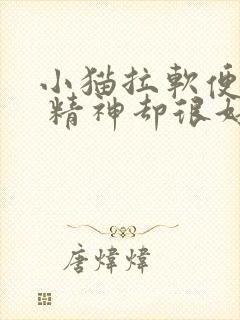 小猫拉軟便
精神却很好
唐煒煒